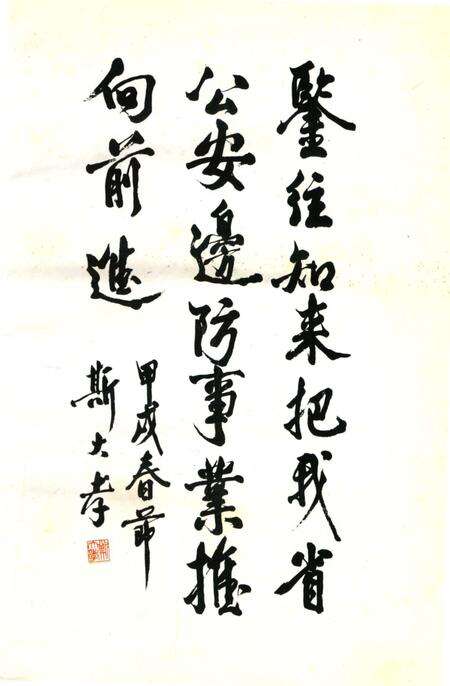 鑒往知来把我省
公安邊防事業推
向前進
甲戌春節
斯大孝